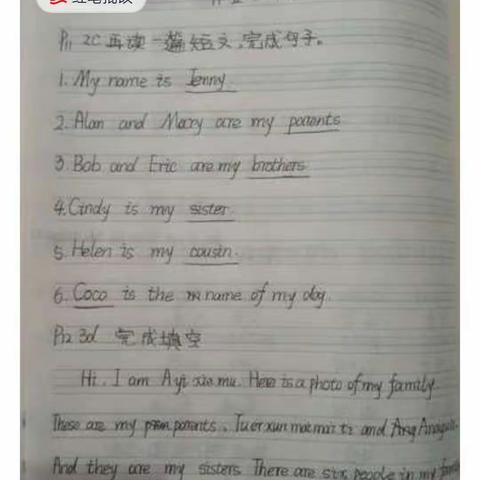 P11 2C 再读一篇短文,完成句子。
1. My name is Jenny.
2. Alan and Mary are my parents
3. Bob and Eric are my brothers
4. Cindy is my sister
5. Helen is my cousin.
6. Coco is the name of my dog.
P12 3d 完成填空
Hi. I am Ayi xia mu. Here is a photo of my family.
These are my parents, and
And they are my sisters. There are six people in my family